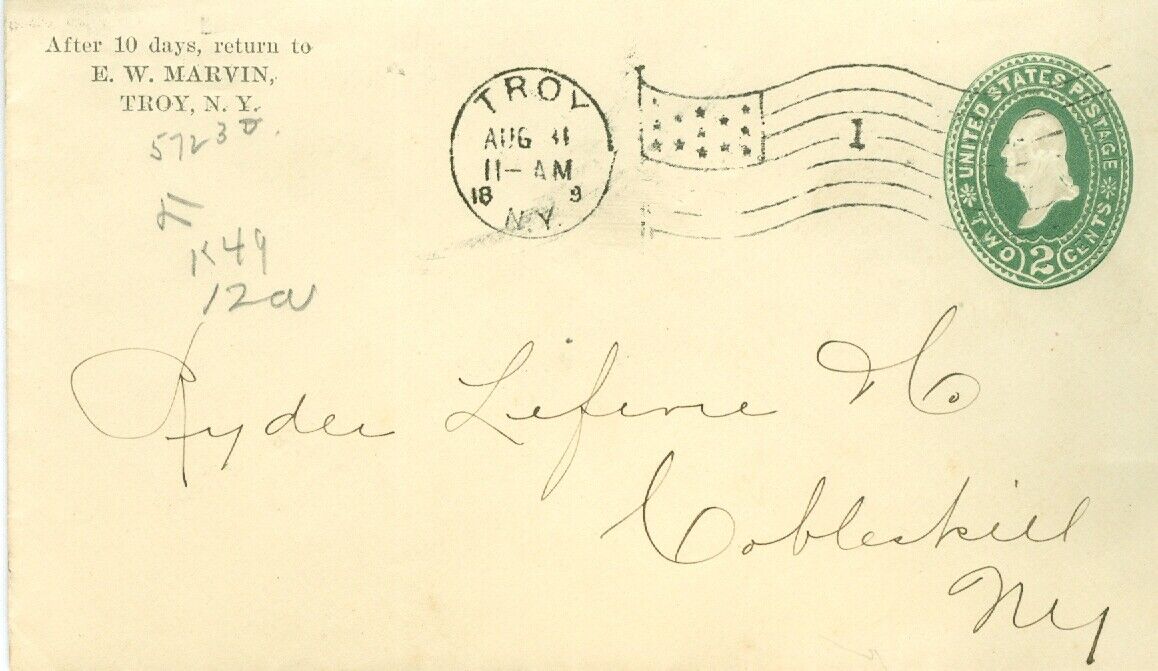 After 10 days, return to
E. W. MARVIN,
TROY, N. Y.
5723
K49
12a
TROY
AUG 31
11-AM
18 9
N.Y.
1
UNITED STATES POSTAGE
TWO 2 CENTS
Ryder Lefevre Co
Cobleskill
Ny